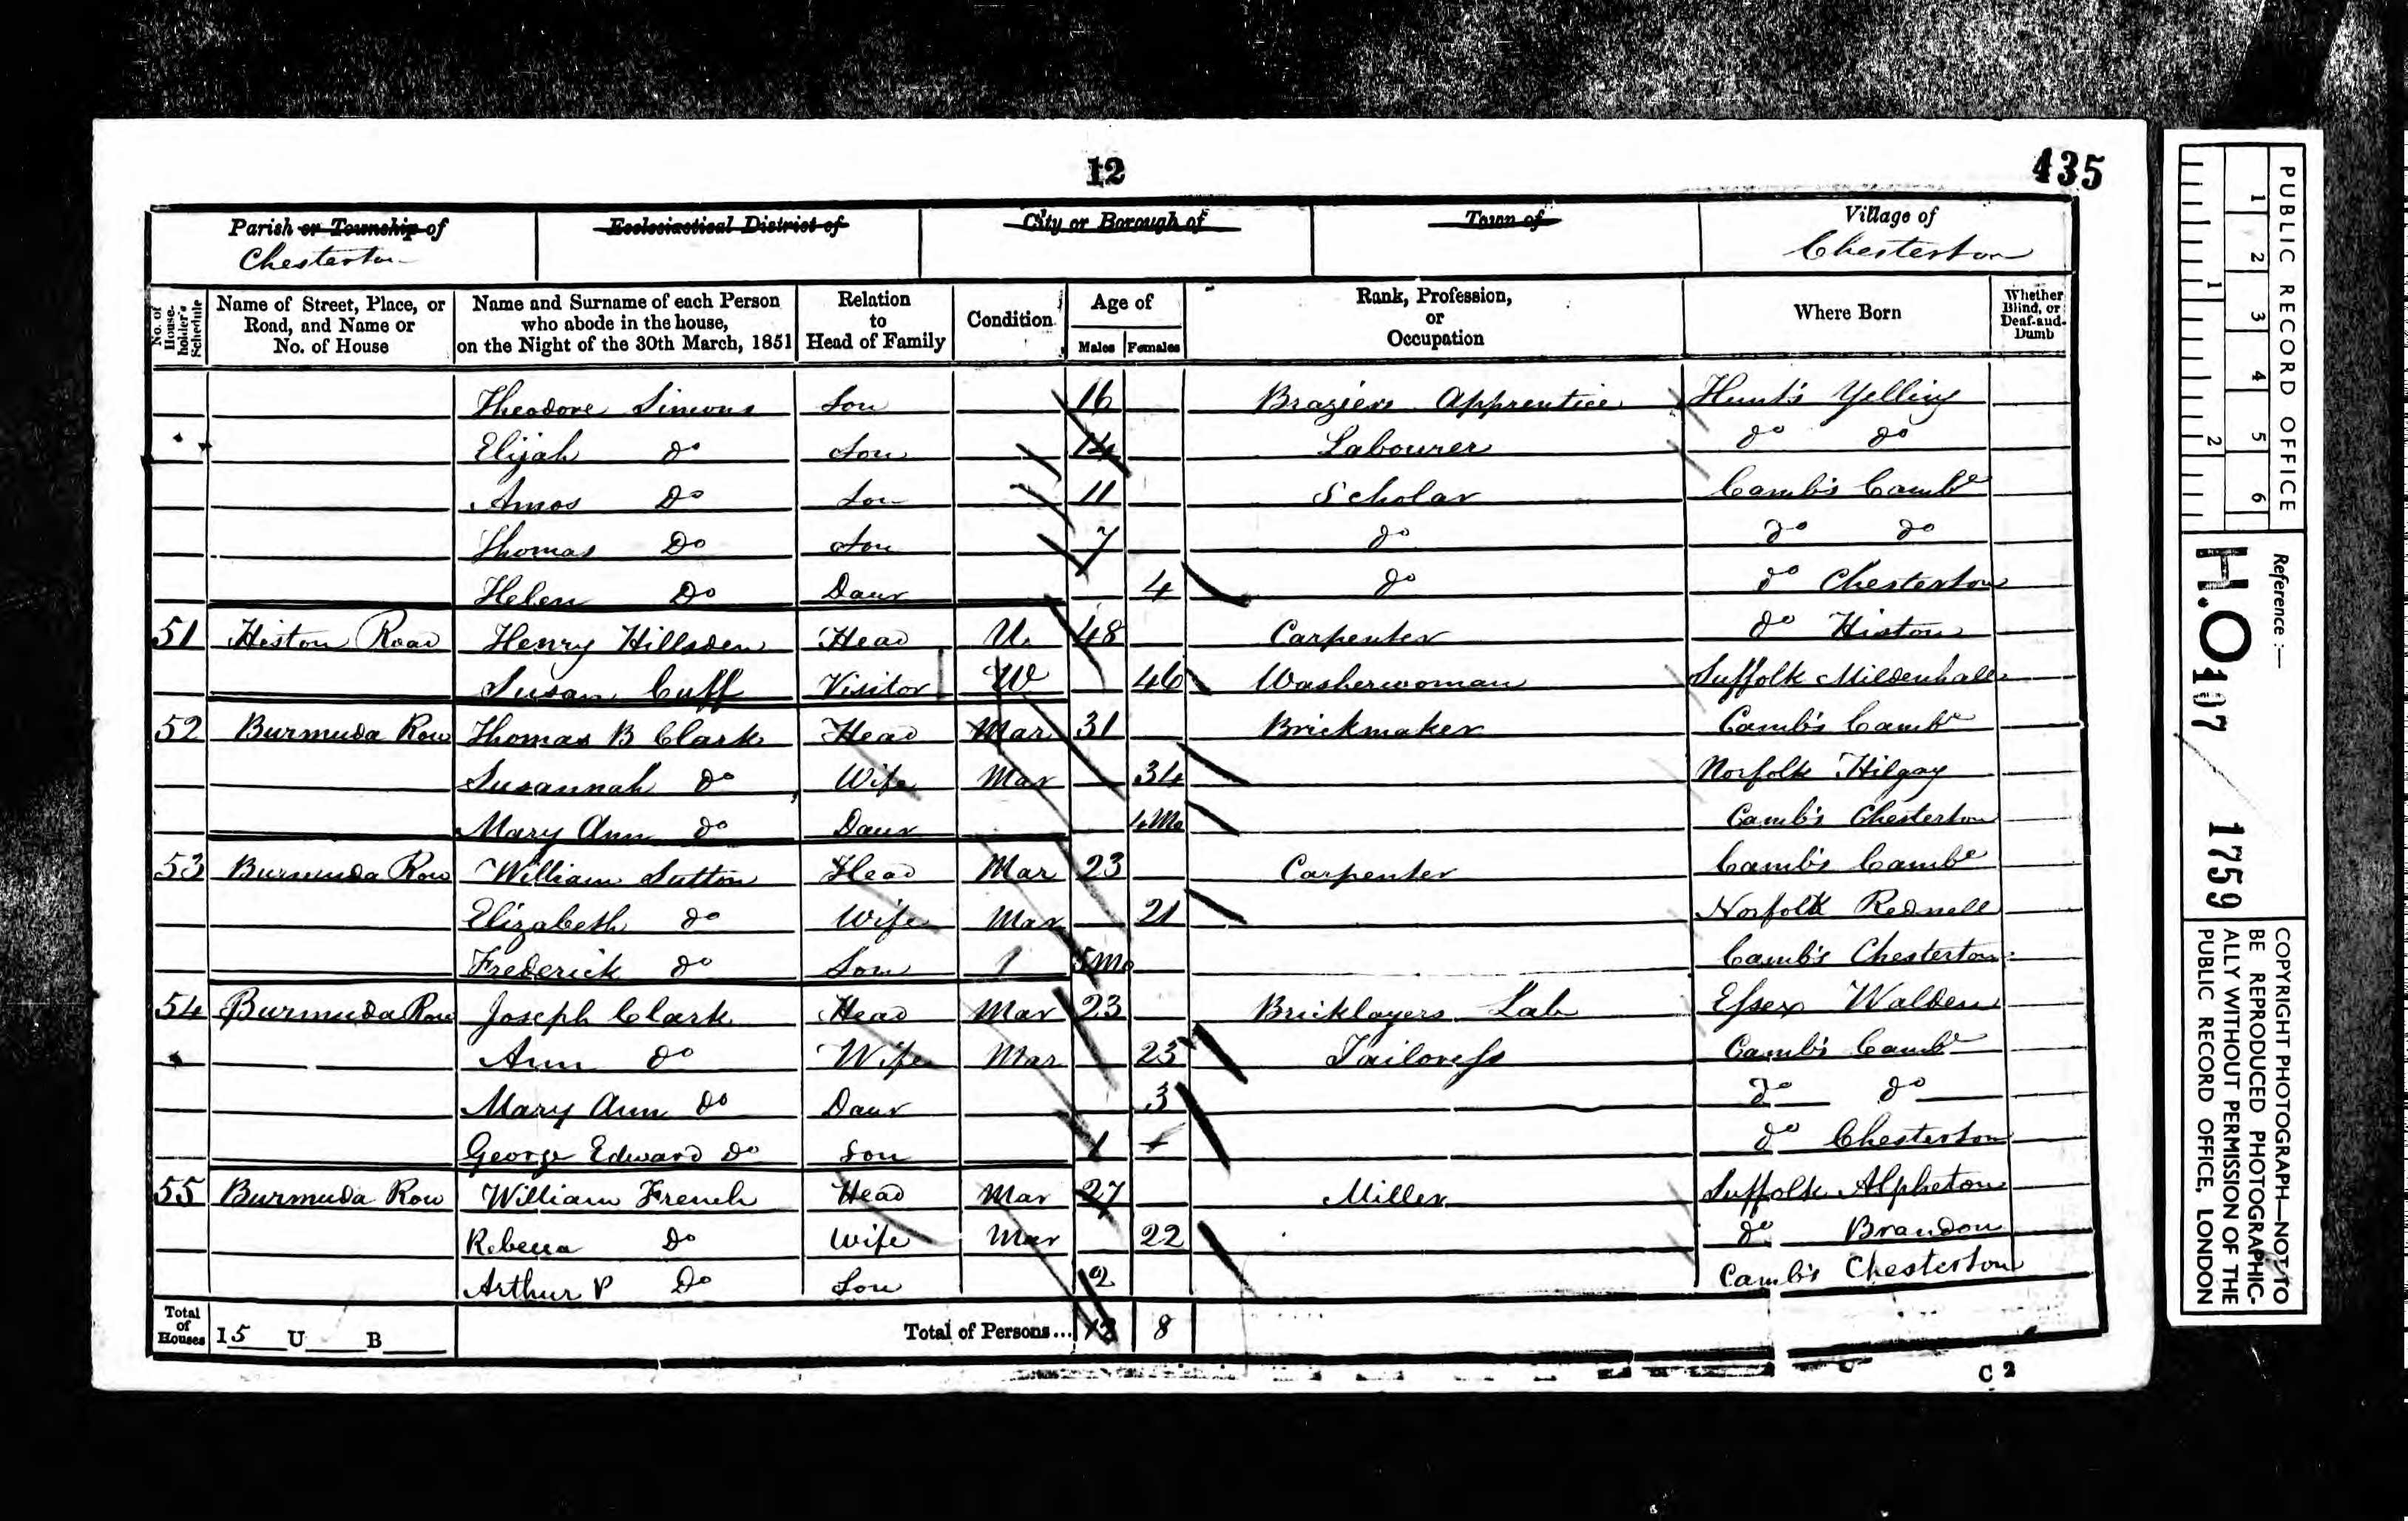 12
435
Parish or Township of
Chesterton
Ecclesiastical District of
City or Borough of
Town of
Village of
Chesterton
No. of House-holder's Schedule
Name of Street, Place, or Road, and Name or No. of House
Name and Surname of each Person who abode in the house, on the Night of the 30th March, 1851
Relation to Head of Family
Condition
Age of
Males Females
Rank, Profession, or Occupation
Where Born
Whether Blind, or Deaf-and-Dumb
Theodore Simons Son 16 Braziers Apprentice Hunts Yelling
Elijah Do Son 14 Labourer do do
Amos Do Son 11 Scholar Camb's Cambe
Thomas Do Son 7 do do do
Helen Do Daur 4 do do Chesterton
51 Histon Road Henry Hillsden Head U. 48 Carpenter do Histon
Susan Cuff Visitor W 46 Washerwoman Suffolk Mildenhall
52 Burmuda Row Thomas B Clark Head Mar 31 Brickmaker Camb's Cambe
Susannah do Wife Mar 34 Norfolk Hilgay
Mary Ann do Daur 4Mo Camb's Chesterton
53 Burmuda Row William Sutton Head Mar 23 Carpenter Camb's Cambe
Elizabeth do Wife Mar 21 Norfolk Rednell
Frederick do Son 5Mo Camb's Chesterton
54 Burmuda Row Joseph Clark Head Mar 23 Bricklayers Lab Essex Walden
Ann do Wife Mar 23 Tailoress Camb's Cambe
Mary Ann do Daur 3 do do
George Edward Do Son 1 do Chesterton
55 Burmuda Row William French Head Mar 27 Miller Suffolk Alpheton
Rebecca Do Wife Mar 22 do Brandon
Arthur P Do Son 2 Camb's Chesterton
Total of Houses 15 U B Total of Persons... 13 8
C 2
PUBLIC RECORD OFFICE
1 2 3 4 5 6
1 2
Reference :—
H.O. 107 / 1759
COPYRIGHT PHOTOGRAPH—NOT TO
BE REPRODUCED PHOTOGRAPHIC-
ALLY WITHOUT PERMISSION OF THE
PUBLIC RECORD OFFICE, LONDON